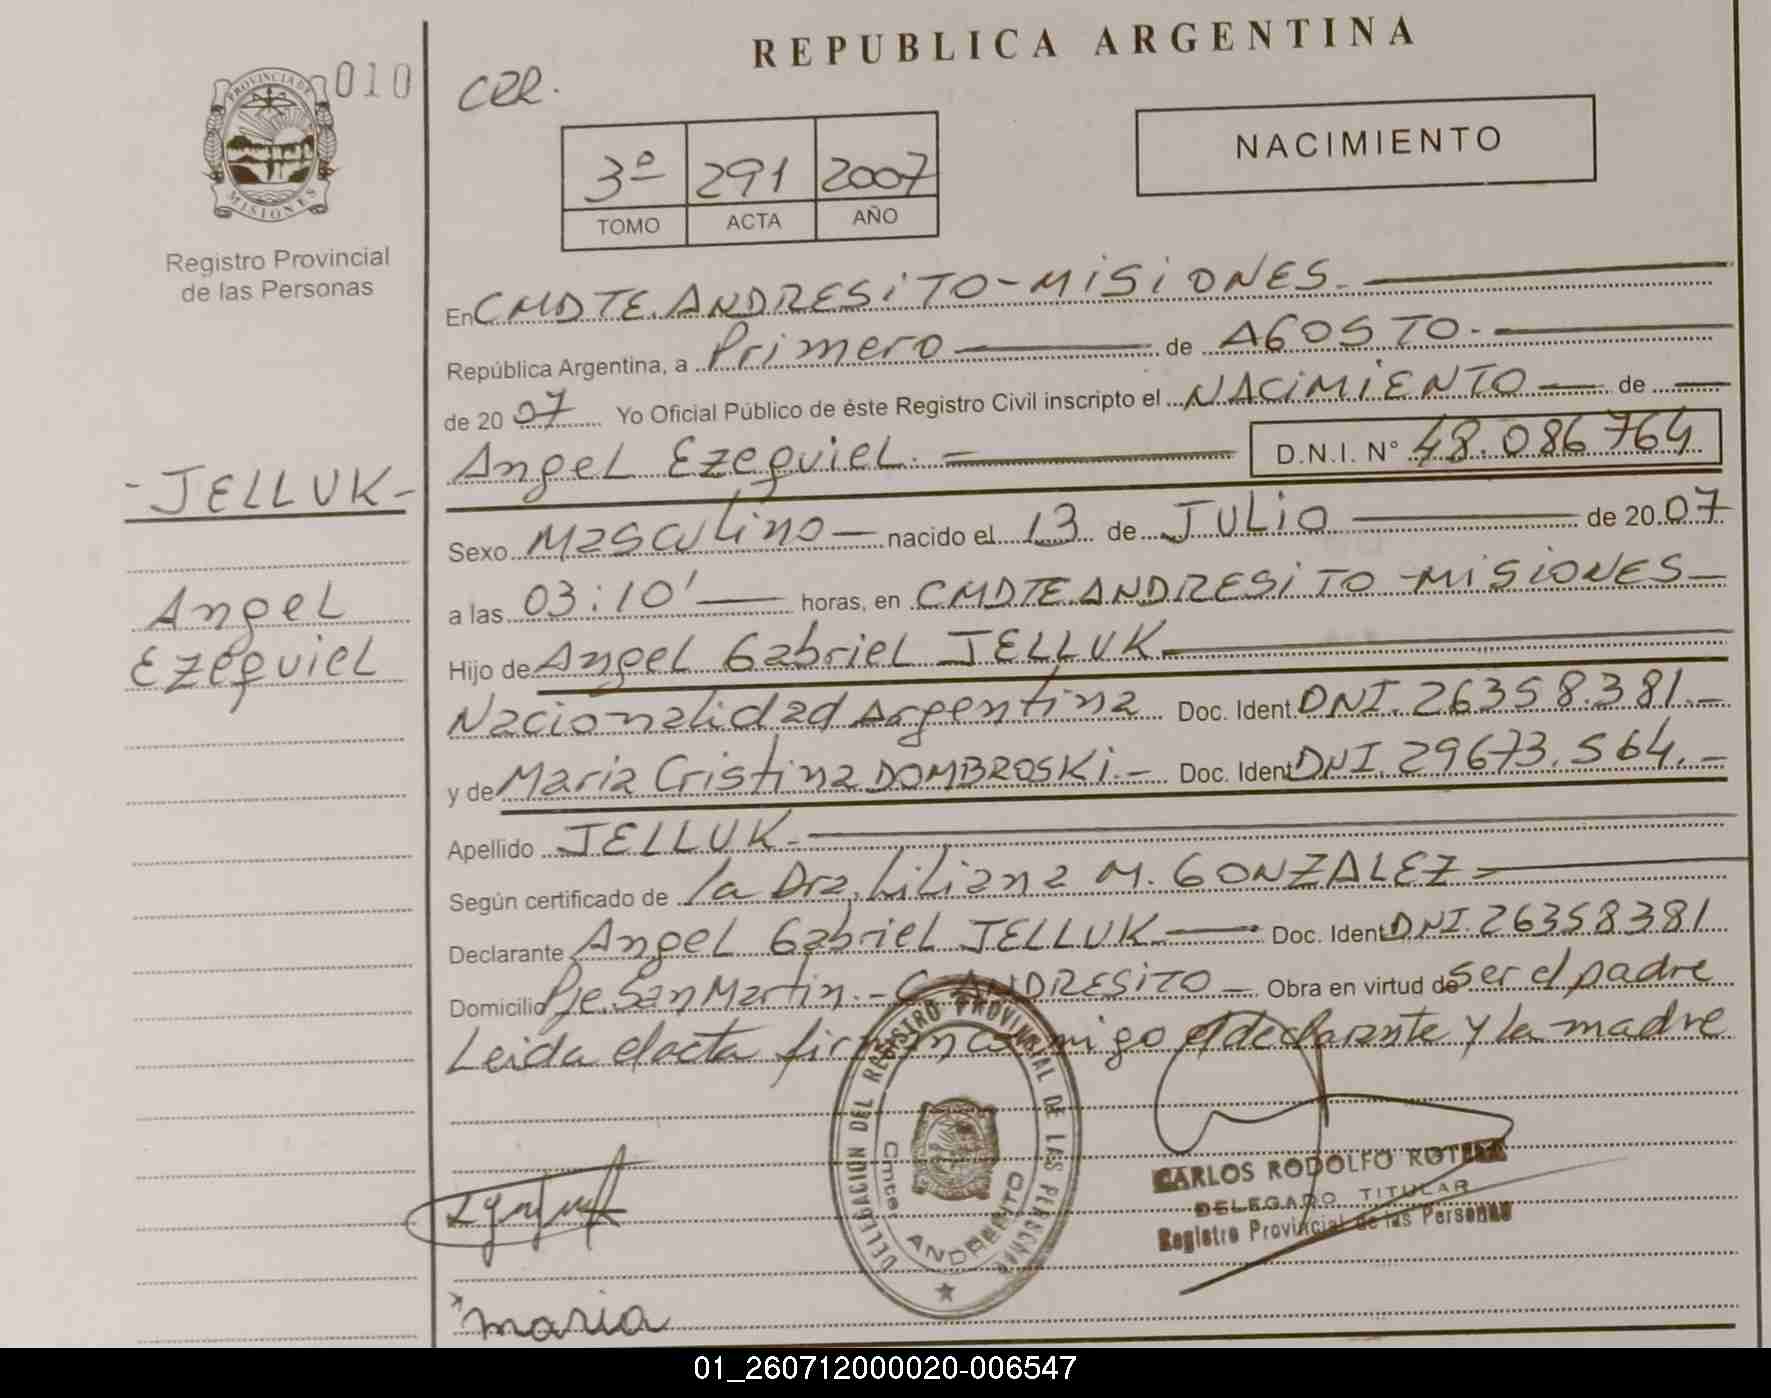 REPUBLICA ARGENTINA
010
PROVINCIA DE
MISIONES
Registro Provincial
de las Personas
CER.
3º 291 2007
TOMO ACTA AÑO
NACIMIENTO
En CMDTE. ANDRESiTO - MiSiONES.
República Argentina, a Primero de AGOSTO.
de 2007 Yo Oficial Público de éste Registro Civil inscripto el NACiMiENTO de
Angel Ezequiel. D.N.I. N° 48.086764
- JELLUK -
Angel
Ezequiel
Sexo Masculino nacido el 13 de JULiO de 20.07
a las 03:10' horas, en CMDTE ANDRESiTO - MiSiONES
Hijo de Angel Gabriel JELLUK
Nacionalidad Argentina Doc. Ident. DNI. 26358.381.
y de Maria Cristina DOMBROSKi. Doc. Ident DNI. 29673.564.
Apellido JELLUK.
Según certificado de la Dra. Liliana M. GONZALEZ
Declarante Angel Gabriel JELLUK. Doc. Ident DNI. 26358381
Domicilio Pje. San Martin. - C. ANDRESiTO Obra en virtud de Ser el padre
Leida el acta firman conmigo el declarante y la madre
DELEGACION DEL REGISTRO PROVINCIAL DE LAS PERSONAS
Cmte. ANDRESITO
CARLOS RODOLFO
DELEGADO TITULAR
Registro Provincial de las Personas
maria
01_260712000020-006547